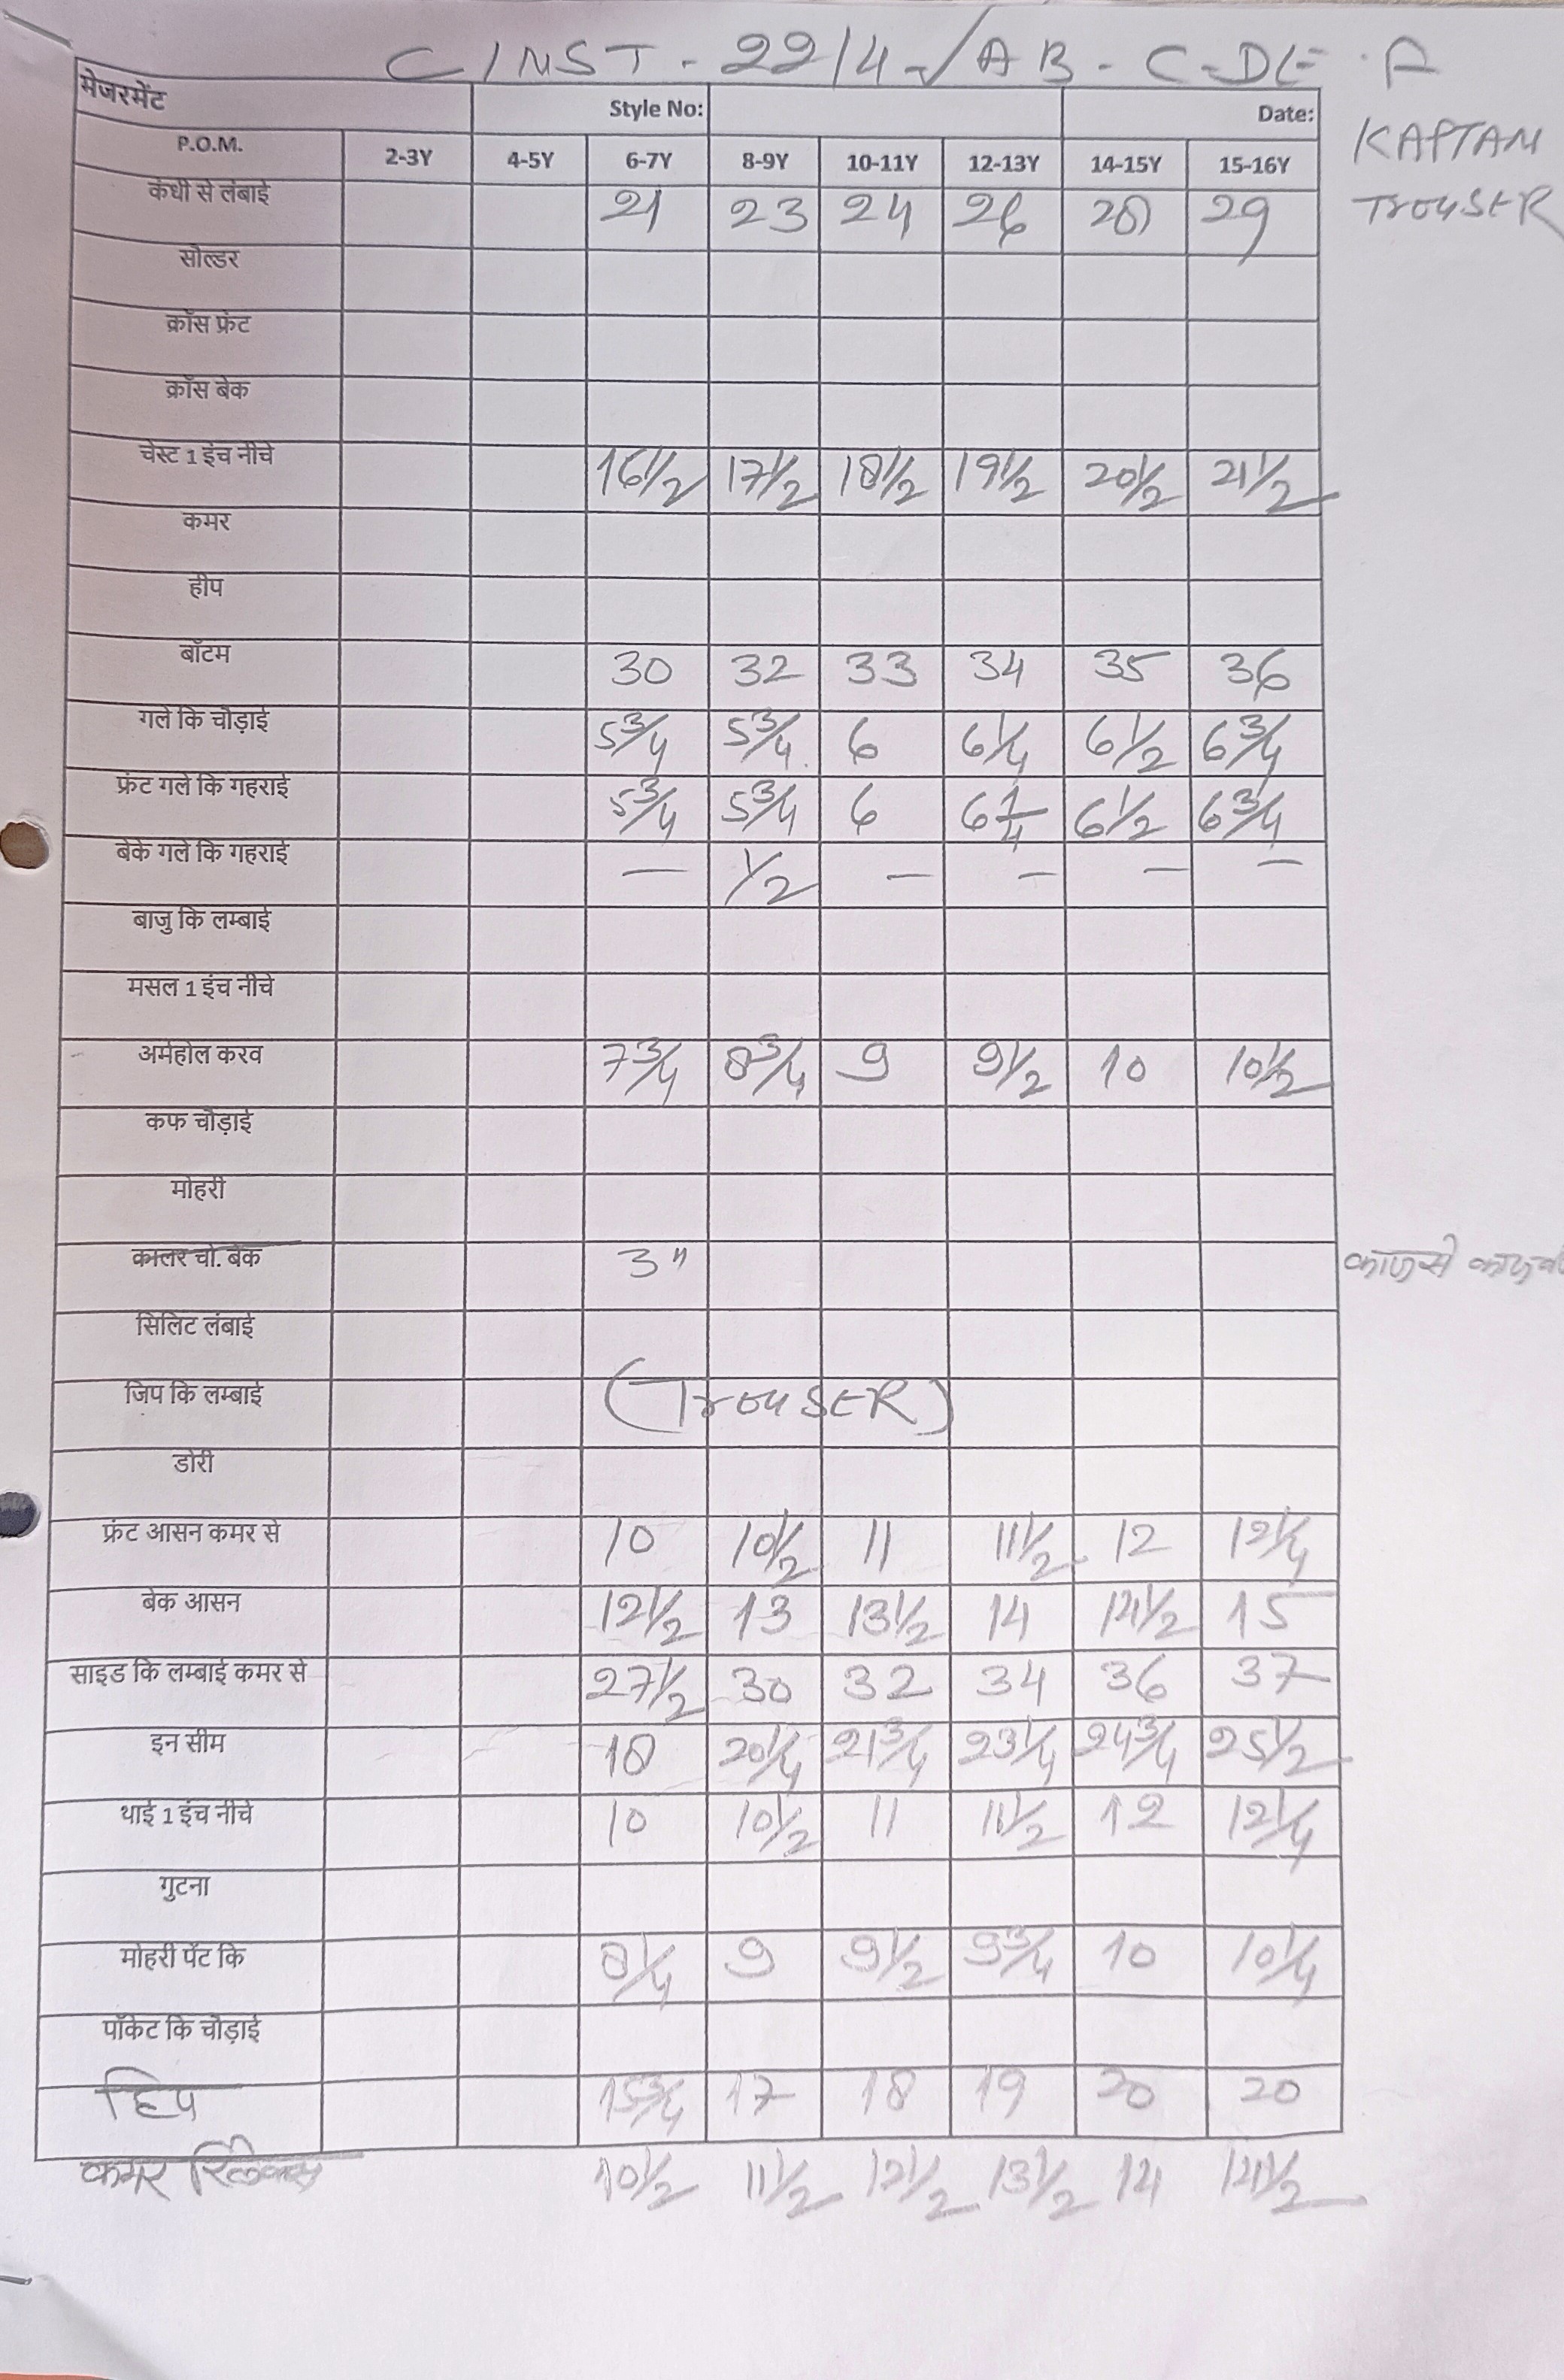 CINST - 2214 - AB - C - DE - F
मेजरमेंट Style No: Date:
KAPTAN
TrouSER
P.O.M. 2-3Y 4-5Y 6-7Y 8-9Y 10-11Y 12-13Y 14-15Y 15-16Y
कंधी से लंबाई 21 23 24 26 28 29
सोल्डर
क्रॉस फ्रंट
क्रॉस बेक
चेस्ट 1 इंच नीचे 16 1/2 17 1/2 18 1/2 19 1/2 20 1/2 21 1/2
कमर
हीप
बॉटम 30 32 33 34 35 36
गले कि चौड़ाई 5 3/4 5 3/4 6 6 1/4 6 1/2 6 3/4
फ्रंट गले कि गहराई 5 3/4 5 3/4 6 6 1/4 6 1/2 6 3/4
बेके गले कि गहराई — 1/2 — — — —
बाजु कि लम्बाई
मसल 1 इंच नीचे
अर्महोल करव 7 3/4 8 3/4 9 9 1/2 10 10 1/2
कफ चौड़ाई
मोहरी
कालर चो. बेक 3"
सिलिट लंबाई
जिप कि लम्बाई (TrouSER)
डोरी
फ्रंट आसन कमर से 10 10 1/2 11 11 1/2 12 12 1/4
बेक आसन 12 1/2 13 13 1/2 14 14 1/2 15
साइड कि लम्बाई कमर से 27 1/2 30 32 34 36 37
इन सीम 18 20 1/4 21 3/4 23 1/4 24 3/4 25 1/2
थाई 1 इंच नीचे 10 10 1/2 11 11 1/2 12 12 1/4
गुटना
मोहरी पेंट कि 8 1/4 9 9 1/2 9 3/4 10 10 1/4
पॉकेट कि चौड़ाई
हिप 15 3/4 17 18 19 20 20
कमर रिलेक्स 10 1/2 11 1/2 12 1/2 13 1/2 14 14 1/2